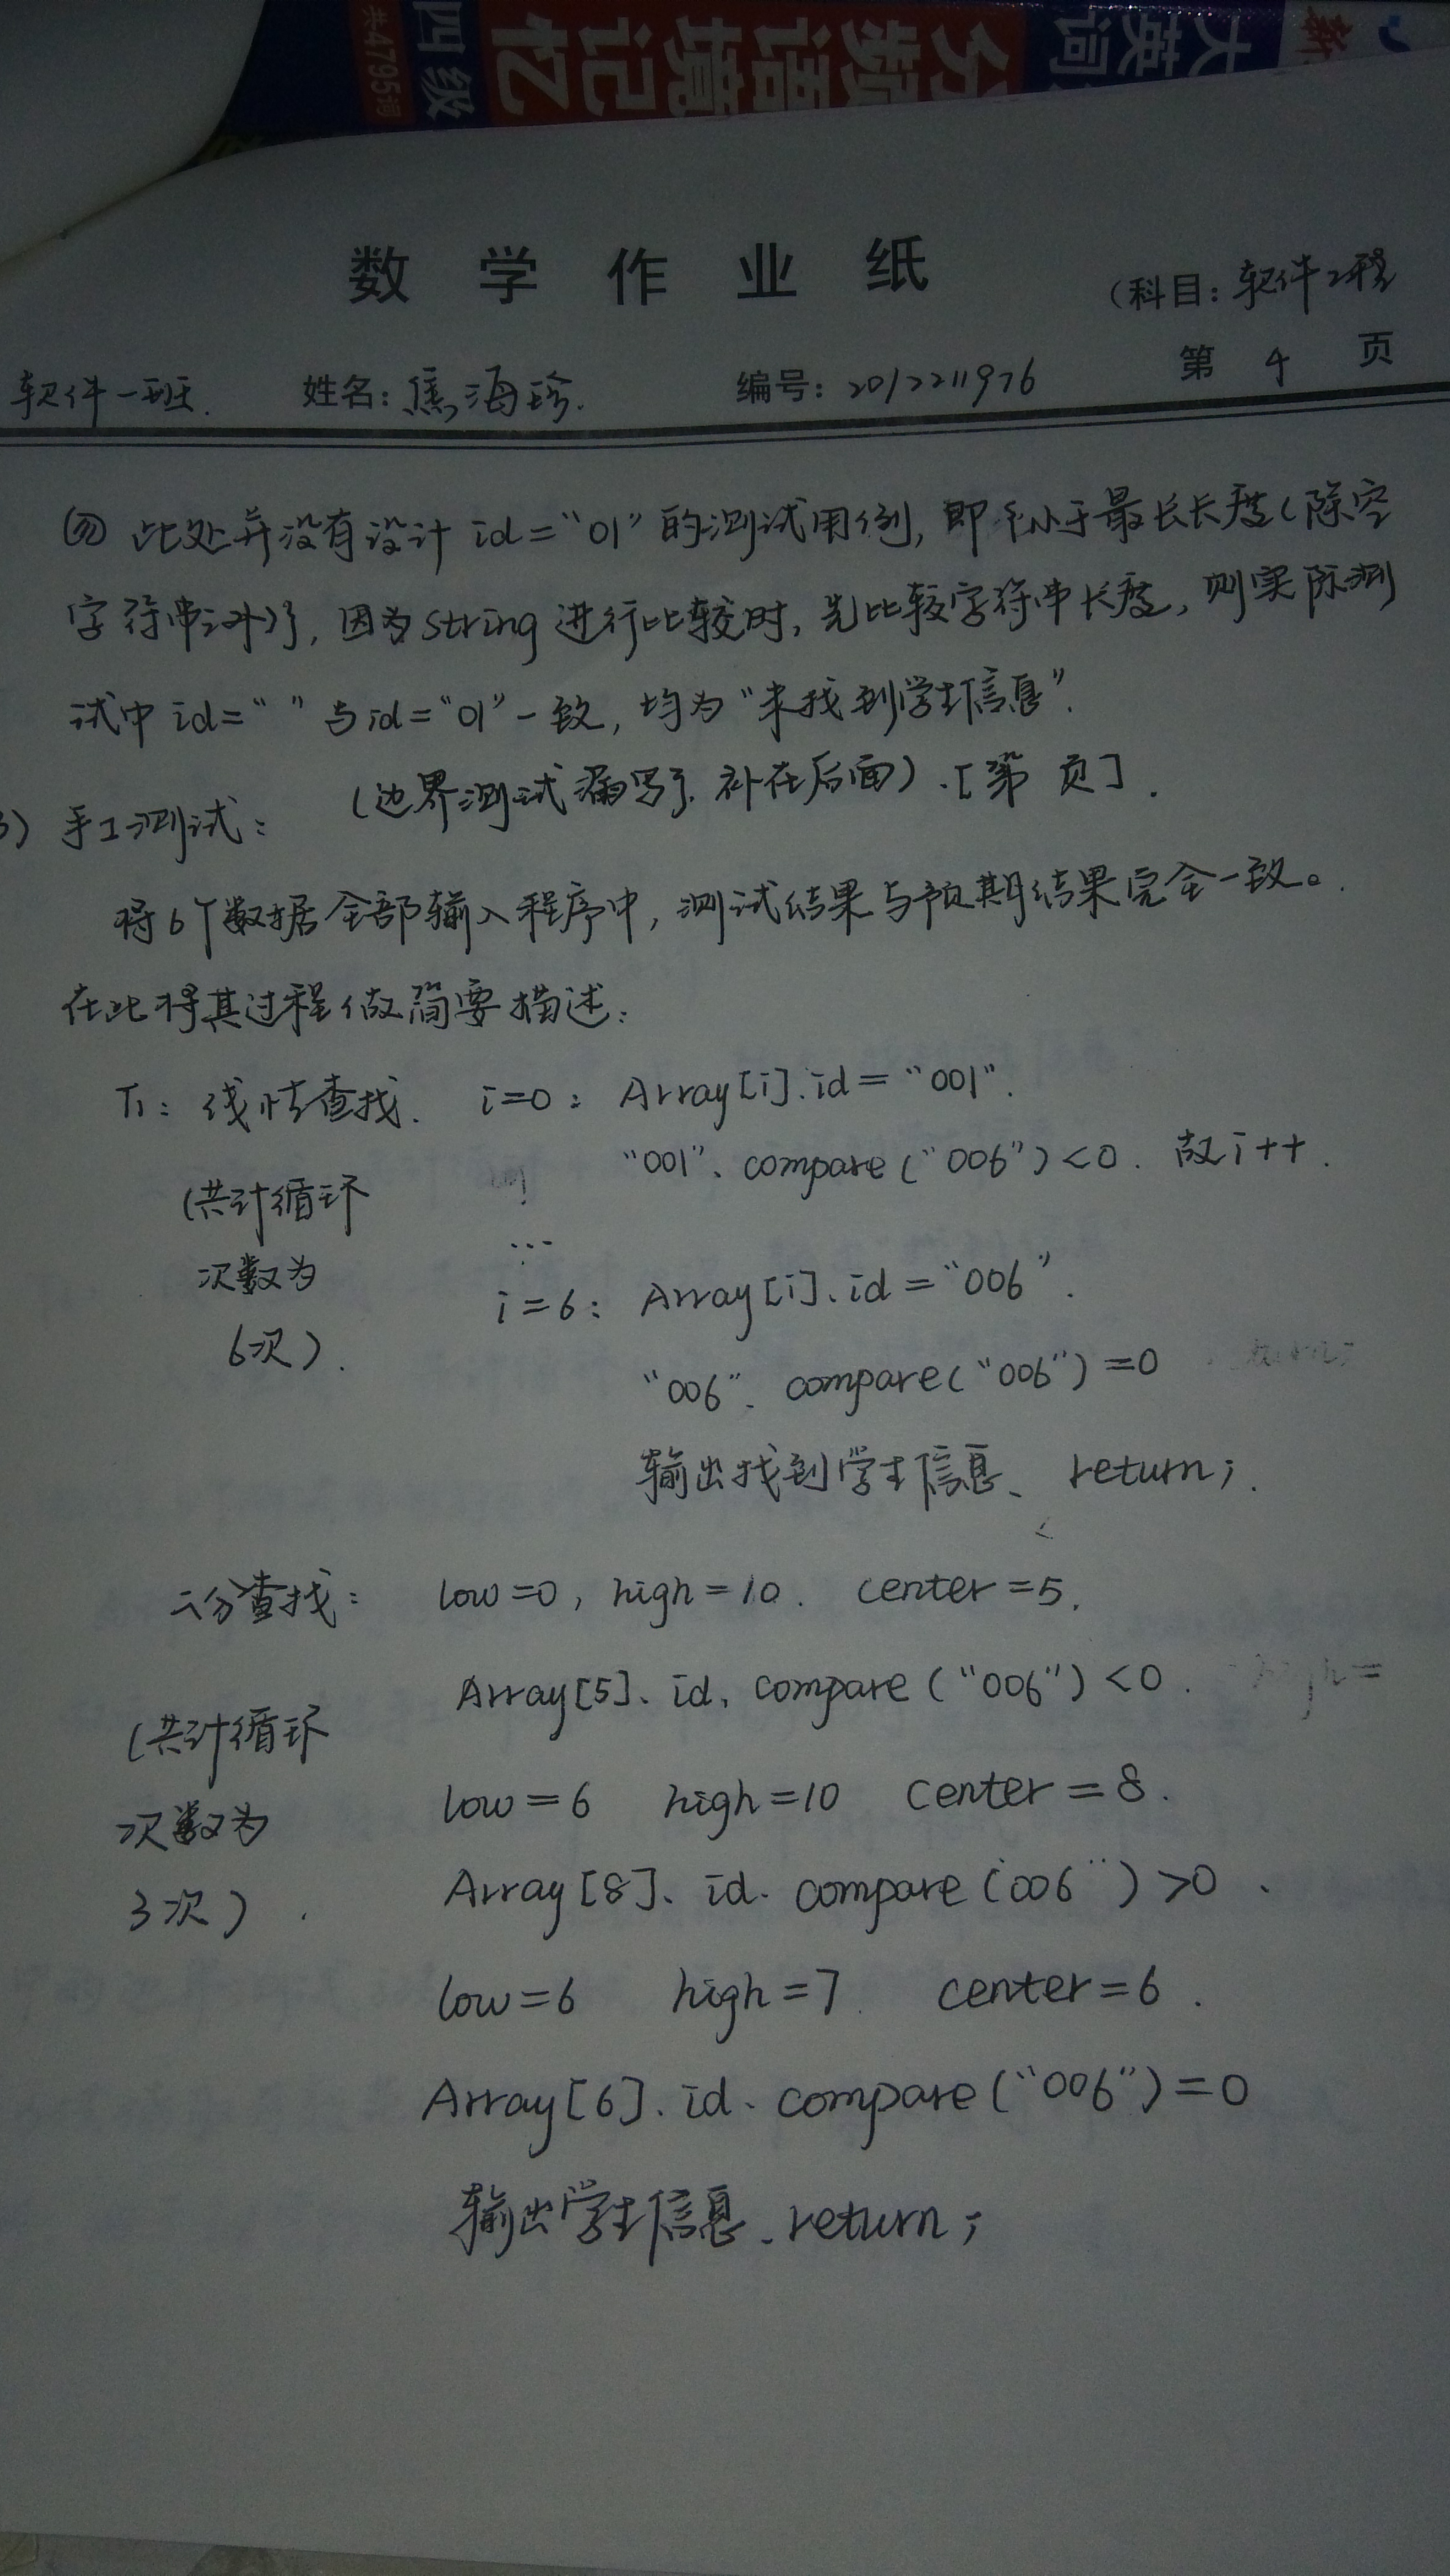 新
大英
词
分频语境记忆
四级
共4795词
数学作业纸
(科目: 软件工程
软件一班. 姓名: 焦海珍. 编号: 2012211976 第 4 页
此处并没有设计 id="01" 的测试用例, 即小于最长长度(除空
字符串之外), 因为string进行比较时, 先比较字符串长度, 则实际测
试中 id=" " 与 id="01" 一致, 均为 "未找到学生信息".
(边界测试漏写了. 补在后面). [第 页].
3) 手工测试:
将6个数据全部输入程序中, 测试结果与预期结果完全一致。
在此将其过程做简要描述:
T1: 线性查找. i=0: Array[i].id = "001".
"001". compare("006")<0. 故i++.
(共计循环
次数为
6次).
...
i=6: Array[i].id = "006".
"006". compare("006")=0
输出找到学生信息、return;.
二分查找: low=0, high=10. center=5.
Array[5].id.compare("006")<0.
(共计循环
次数为
3次).
low=6 high=10 center=8.
Array[8].id.compare("006")>0.
low=6 high=7. center=6.
Array[6].id.compare("006")=0
输出学生信息、return;